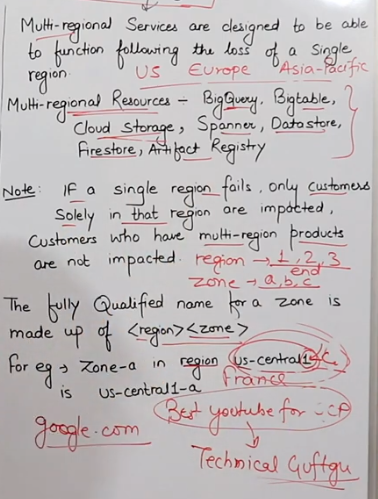 Multi-regional Services are designed to be able
to function following the loss of a Single
region.
US Europe Asia-Pacific
Multi-regional Resources ÷ BigQuery, Bigtable,
Cloud Storage, Spanner, Datastore,
Firestore, Artifact Registry
Note: IF a single region fails, only customers
Solely in that region are impacted,
Customers who have multi-region products
are not impacted. region → 1, 2, 3
end
zone → a, b, c
The fully Qualified name for a zone is
made up of <region><zone>
for eg → Zone-a in region us-central1
is us-central1-a
France
Best youtube for GCP
google.com
Technical Guftgu